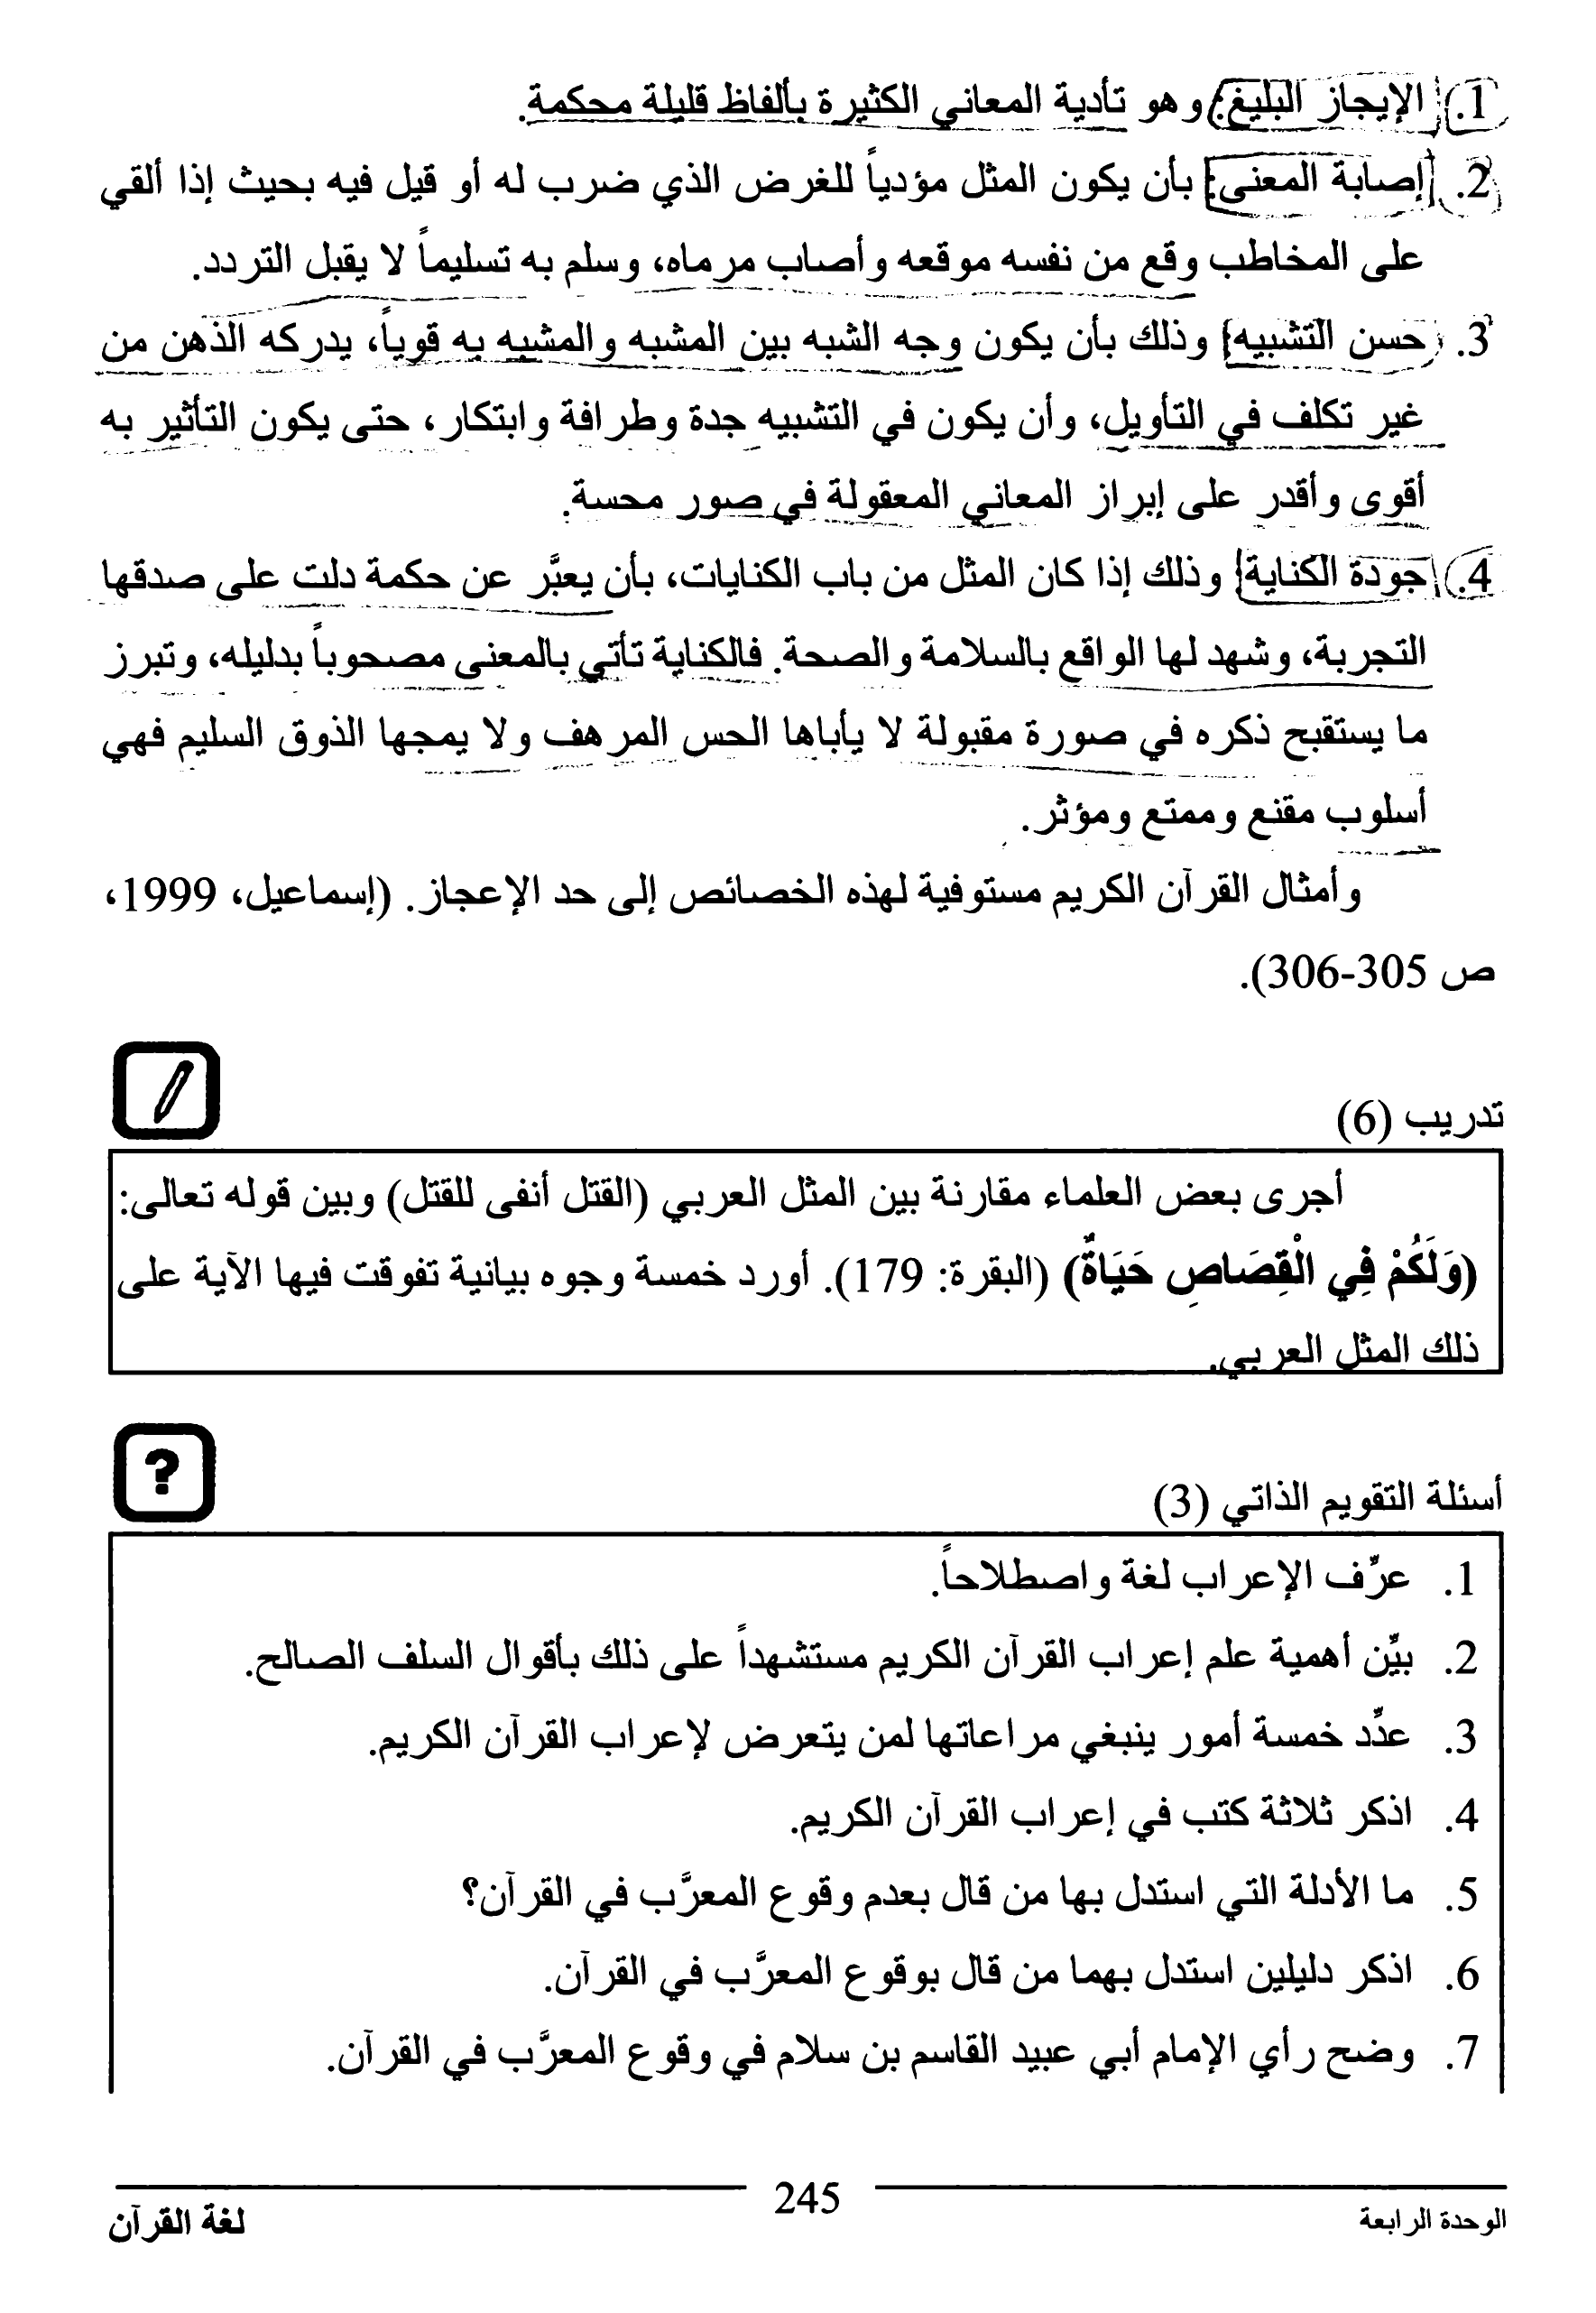 1. الإيجاز البليغ: وهو تأدية المعاني الكثيرة بألفاظ قليلة محكمة.
2. إصابة المعنى: بأن يكون المثل مؤدياً للغرض الذي ضرب له أو قيل فيه بحيث إذا ألقي
على المخاطب وقع من نفسه موقعه وأصاب مرماه، وسلم به تسليماً لا يقبل التردد.
3. حسن التشبيه: وذلك بأن يكون وجه الشبه بين المشبه والمشبه به قوياً، يدركه الذهن من
غير تكلف في التأويل، وأن يكون في التشبيه جدة وطرافة وابتكار، حتى يكون التأثير به
أقوى وأقدر على إبراز المعاني المعقولة في صور محسة.
4. جودة الكناية: وذلك إذا كان المثل من باب الكنايات، بأن يعبَّر عن حكمة دلت على صدقها
التجربة، وشهد لها الواقع بالسلامة والصحة. فالكناية تأتي بالمعنى مصحوباً بدليله، وتبرز
ما يستقبح ذكره في صورة مقبولة لا يأباها الحس المرهف ولا يمجها الذوق السليم فهي
أسلوب مقنع وممتع ومؤثر.
وأمثال القرآن الكريم مستوفية لهذه الخصائص إلى حد الإعجاز. (إسماعيل، 1999،
ص 305-306).
تدريب (6)
أجرى بعض العلماء مقارنة بين المثل العربي (القتل أنفى للقتل) وبين قوله تعالى:
(وَلَكُمْ فِي الْقِصَاصِ حَيَاةٌ) (البقرة: 179). أورد خمسة وجوه بيانية تفوقت فيها الآية على
ذلك المثل العربي.
?
أسئلة التقويم الذاتي (3)
1. عرِّف الإعراب لغة واصطلاحاً.
2. بيِّن أهمية علم إعراب القرآن الكريم مستشهداً على ذلك بأقوال السلف الصالح.
3. عدِّد خمسة أمور ينبغي مراعاتها لمن يتعرض لإعراب القرآن الكريم.
4. اذكر ثلاثة كتب في إعراب القرآن الكريم.
5. ما الأدلة التي استدل بها من قال بعدم وقوع المعرَّب في القرآن؟
6. اذكر دليلين استدل بهما من قال بوقوع المعرَّب في القرآن.
7. وضح رأي الإمام أبي عبيد القاسم بن سلام في وقوع المعرَّب في القرآن.
الوحدة الرابعة 245 لغة القرآن